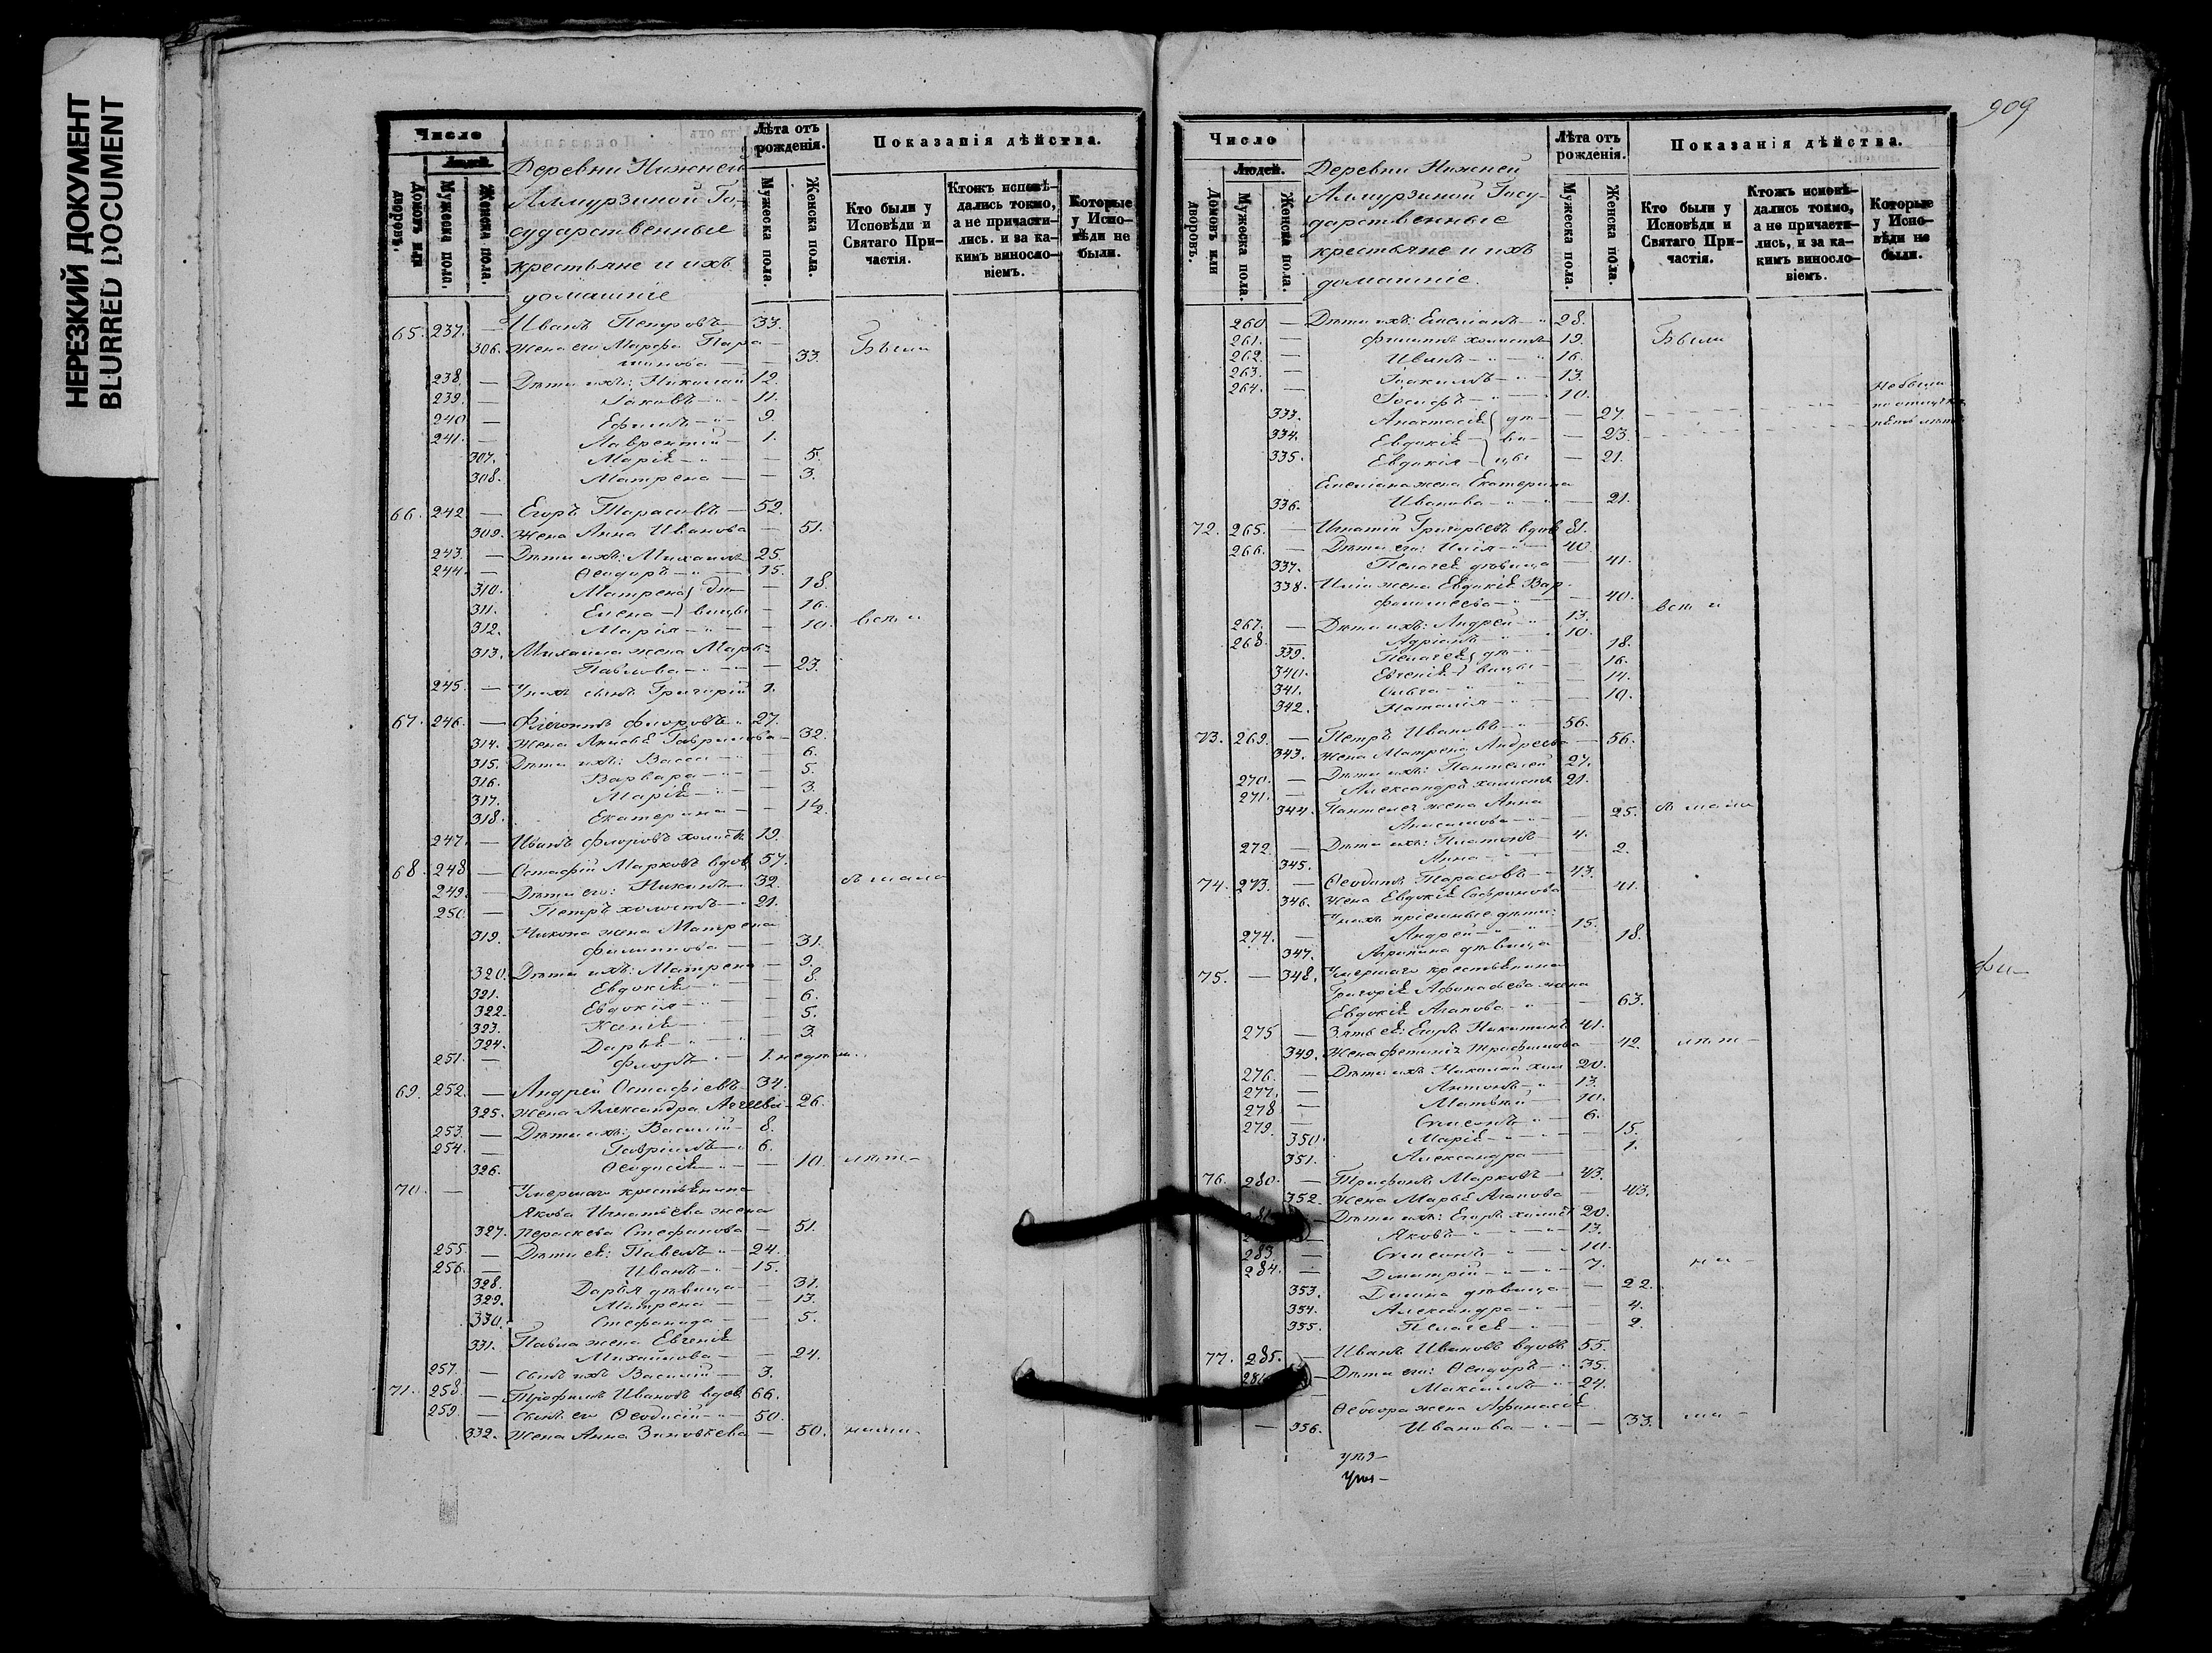 НЕРЕЗКИЙ ДОКУМЕНТ
BLURRED DOCUMENT
Число
Людей.
Домовъ или дворовъ.
Мужеска пола.
Женска пола.
Деревни Нижней
Алмурзиной Го-
сударственные
крестьяне и ихъ
домашніе
Лѣта отъ рожденія.
Мужеска пола.
Женска пола.
Показанія дѣйства.
Кто были у Исповѣди и Святаго Причастія.
Ктожъ исповѣ-
дались токмо,
а не причасти-
лись. и за ка-
кимъ винословіемъ.
Которые у Испо-
вѣди не были.
65. 237. — Иванъ Петровъ — 33.
306. Жена его Марфа — 33. Были
238. — Дѣти ихъ: Николай 12.
239. — Іаковъ 11.
240 — Ефимъ 9.
241. — Лаврентій 1.
307. Марія — 5.
308. Матрена — 3.
66. 242 — Егоръ Тарасовъ — 52.
309. Жена Анна Иванова — 51.
243. — Дѣти ихъ: Михаилъ 25.
244. — Ѳеодоръ 15.
310. Матрена дѣ- — 18.
311. Елена вицы — 16.
312. Марія — 10.
313. Михаила жена Марья
Павлова — 23.
245. — У нихъ сынъ Григорій 1.
67. 246. — Флоровъ 27.
314. Жена Гаврилова — 32.
315. Дѣти ихъ: Васса 6.
316. Варвара — 5.
317. Марія — 3.
318. Екатерина — 1½
247. — Иванъ Флоровъ холостъ 19.
68. 248 — Остафій Марковъ вдовъ 57.
249. — Дѣти его: Никонъ 32.
250 — Петръ холостъ 21.
319. Никона жена Матрена
Филиппова — 31.
320. Дѣти ихъ: Матрена — 9.
321. Евдокія 8.
322. Евдокія 6.
323. Ксенія 5.
324. Дарья 3.
251. — Флоръ 1.
69. 252. — Андрей Остафіевъ 34.
325. Жена Александра 26.
253. — Дѣти ихъ: Василій 8.
254. — Гавріилъ 6.
326. Ѳеодосія — 10.
70. — Умершаго крестьянина
Якова Игнатьева жена
327. Параскева Стефанова — 51.
255. — Дѣти ея: Павелъ 24.
256. — Иванъ 15.
328. Дарья дѣвица 31.
329. Матрена — 13.
330. Стефанида — 5.
331. Павла жена Евгенія
Михайлова — 24.
257. — Сынъ ихъ Василій — 3.
71. 258. — Трофимъ Ивановъ вдовъ 66.
259. — Сынъ его Ѳеодосій 50.
332. Жена Анна Зиновьева — 50.
909
Число
Людей.
Домовъ или дворовъ.
Мужеска пола.
Женска пола.
Деревни Нижней
Алмурзиной Госу-
дарственные
крестьяне и ихъ
домашніе.
Лѣта отъ рожденія.
Мужеска пола.
Женска пола.
Показанія дѣйства.
Кто были у Исповѣди и Святаго Причастія.
Ктожъ исповѣ-
дались токмо,
а не причасти-
лись, и за ка-
кимъ винословіемъ.
Которые у Испо-
вѣди не были.
260 — Дѣти ихъ: Емеліанъ 28.
261. — Филиппъ холостъ 19. Были
262. — Иванъ 16.
263. — Іоакимъ 13.
264. — Іосифъ 10. Не были
333. Анастасія дѣ- — 27.
334. Евдокія ви- — 23.
335. Евдокія цы — 21.
Емеліана жена Екатерина
336. Иванова — 21.
72. 265. — Игнатій Григорьевъ вдовъ 81.
266. — Дѣти его: Илія 40
337. Пелагея дѣвица — 41.
338. Иліи жена Евдокія Вар-
фоломеева — 40.
267. — Дѣти ихъ: Андрей 13.
268. — Адріанъ 10.
339. Пелагея дѣ- 18.
340. Евгенія вицы — 16.
341. Ольга 14.
342. Наталія — 10.
73. 269. — Петръ Ивановъ 56.
343. Жена Матрена Андреева — 56.
270. — Дѣти ихъ: Пантелей 27.
271. — Александръ холостъ 21.
344. Пантелея жена Анна
— 25.
272. — Дѣти ихъ: Платонъ 4.
345. Анна 2.
74. 273. — Ѳеодотъ Тарасовъ 43.
346. Жена Евдокія 41.
У нихъ пріемные дѣти:
274. — Андрей 15.
347. дѣвица 18.
75. — 348. Умершаго крестьянина
Григорія жена
Евдокія Агапова — 63.
275 — Зять ея: Егоръ Никитинъ 41.
349. Жена Трофимова 42.
276. — Дѣти ихъ Николай хол 20.
277. — Антонъ 13.
278 — Матвей 10.
279. — Симеонъ 6.
350. Марія 15.
351. Александра 1.
76. 280. — Трофимъ Марковъ 43.
352. Жена Марья Агапова — 43.
— Дѣти ихъ: Егоръ холостъ 20.
— Яковъ 13.
283. — Симеонъ 10.
284. — Димитрій 7.
353. дѣвица — 22.
354. Александра — 4.
355. Пелагея — 2.
77. 285. — Иванъ Ивановъ вдовъ 55.
— Дѣти его: Ѳеодоръ 35.
— Максимъ 24.
Ѳеодора жена Афанасія
— 356. Иванова — 33.